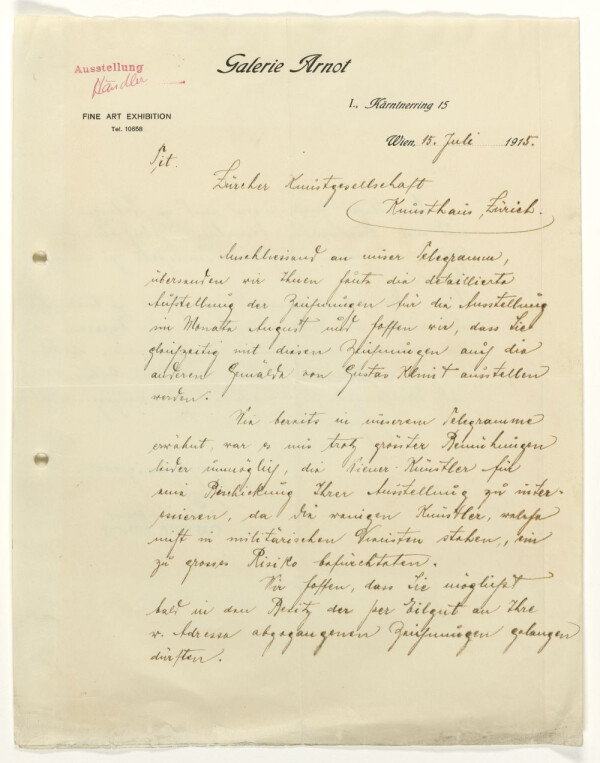 Ausstellung
Händler
Galerie Arnot
FINE ART EXHIBITION
Tel. 10658
I., Kärntnerring 15
Wien, 15. Juli 1915.
Tit.
Zürcher Kunstgesellschaft
Kunsthaus, Zürich.
Anschliessend an unser Telegramm,
übersenden wir Ihnen heute die detaillierte
Aufstellung der Zeichnungen für die Ausstellung
im Monate August und hoffen wir, dass Sie
gleichzeitig mit diesen Zeichnungen auch die
anderen Gemälde von Gustav Klimt ausstellen
werden.
Wie bereits in unserem Telegramme
erwähnt, war es uns trotz grösster Bemühungen
leider unmöglich, die Wiener-Künstler für
eine Beschickung Ihrer Ausstellung zu inter-
essieren, da die wenigen Künstler, welche
nicht in militärischen Diensten stehen, ein
zu grosses Risiko befürchteten.
Wir hoffen, dass Sie möglichst
bald in den Besitz der per Eilgut an Ihre
w. Adresse abgegangenen Zeichnungen gelangen
dürften.